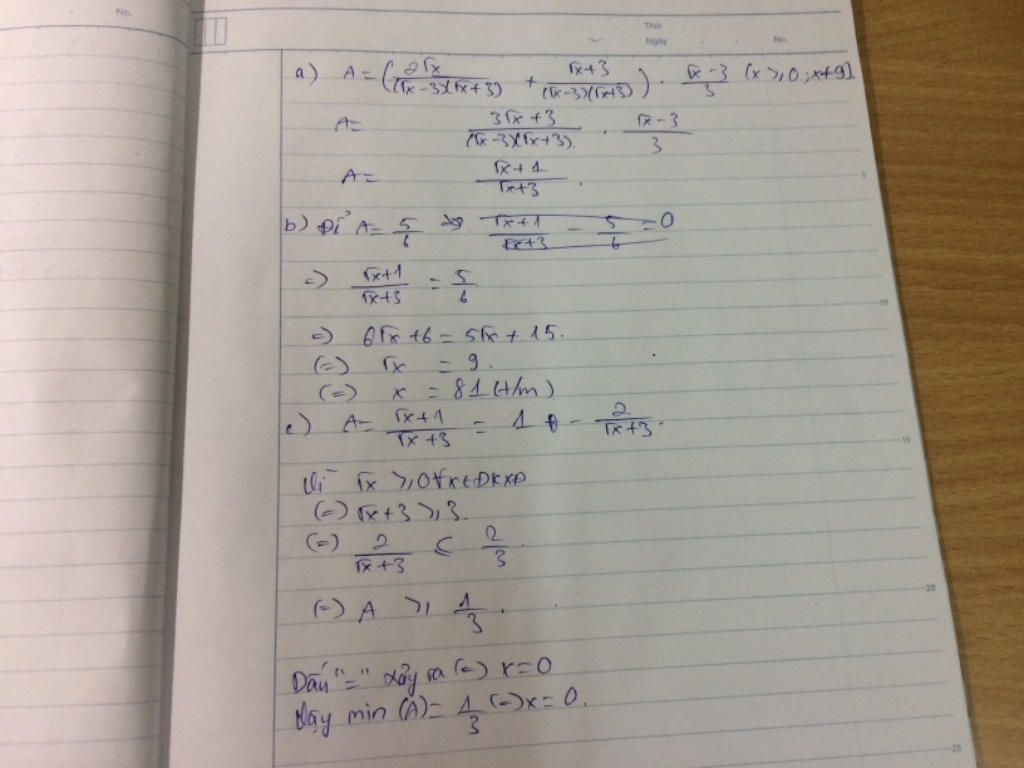 No.
Thứ
Ngày No.
a) A = (2√x/((√x-3)(√x+3)) + (√x+3)/((√x-3)(√x+3))) . (√x-3)/3 (x ≥ 0; x≠9).
A = (3√x+3)/((√x-3)(√x+3)) . (√x-3)/3
A = (√x+1)/(√x+3).
b) Để A = 5/6
=) (√x+1)/(√x+3) = 5/6
=) 6√x+6 = 5√x+15.
(=) √x = 9.
(=) x = 81 (t/m)
c) A = (√x+1)/(√x+3) = 1 - 2/(√x+3).
Vì √x ≥ 0 ∀x ∈ ĐKXĐ
(=) √x+3 ≥ 3.
(=) 2/(√x+3) ≤ 2/3
(=) A ≥ 1/3.
Dấu "=" xảy ra (=) x=0
Vậy min (A) = 1/3 (=) x=0.
5
10
15
20
25